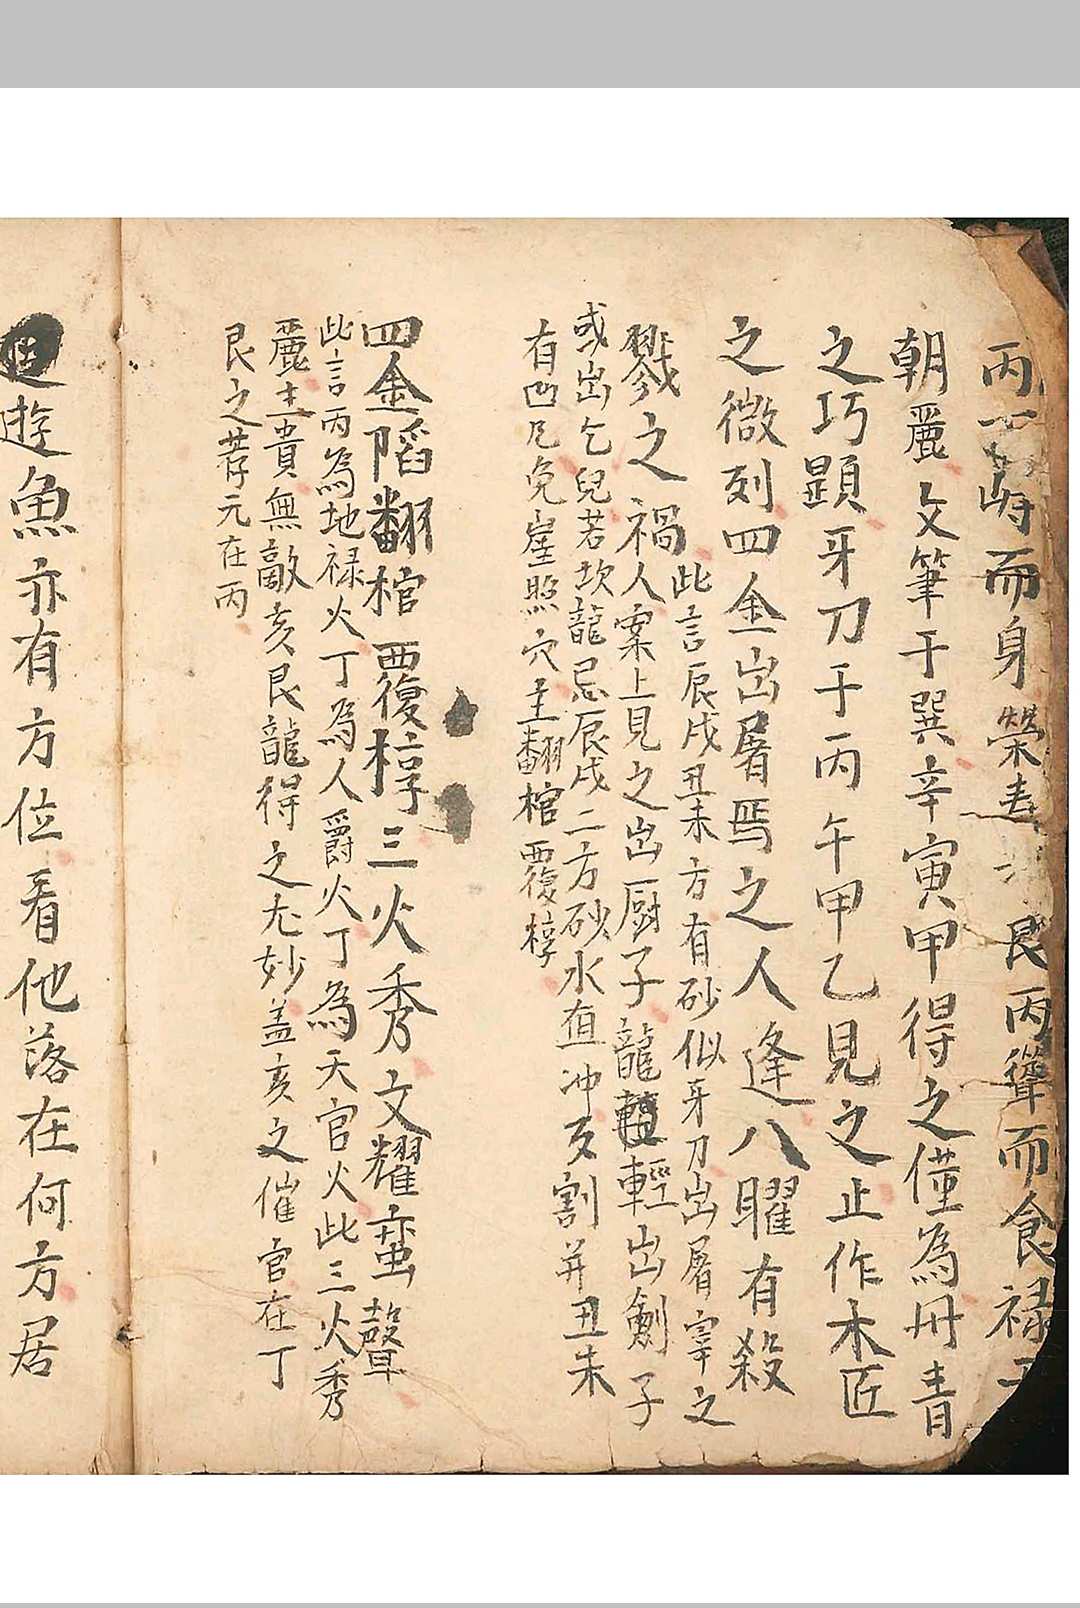 丙丁峙而身榮壽艮丙聳而食祿
朝麗文筆于巽辛寅甲得之僅為丹青
之巧顕牙刀于丙午甲乙見之止作木匠
之微列四金出屠焉之人逢八曜有殺
戮之禍
此言辰戌丑未方有砂似牙刀出屠宰之
人案上見之出厨子龍輕出劊子
或出乞兒若坎龍忌辰戌二方砂水直冲攻割并丑未
有凹凡免崖照穴主翻棺覆椁
四金䧟翻棺覆椁三火秀文耀蜚聲
此言丙為地禄火丁為人爵火丁為天官火此三火秀
麗主貴無敵亥艮龍得之尤妙盖亥之催官在丁
艮之荐元在丙
遊魚亦有方位看他落在何方居